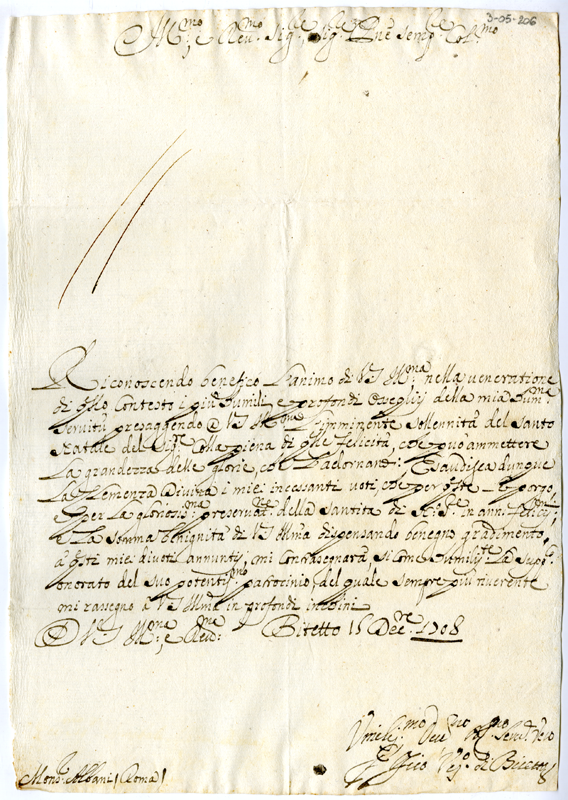 3-05-206
Ill.mo e Rev.mo Sig.re Sig.re P.ne Semp.re Col.mo
Riconoscendo benefico L'animo di V.S. Ill.ma nella veneratione
di q.llo Contesto i più humili, e profondi della mia hum.ma
servitù presaggendo a V.S. Ill.ma L'imminente sollennità del Santo
Natale del Sig.re Colla piena di q.lle felicità, che può ammettere
La grandezza delle glorie, che L'adornano: Esaudisca dunque
La Clemenza Divina i miei incessanti voti, che per q.sto porgo,
e per La glorios.ma preservat.ne della Santità di N.S.re in anni felici.mi
e La somma benignità di V.S. Ill.ma dispensando benegno gradimento
a q.sti miei divoti annuntij mi Contrasegnarà si Come humilm.te La
onorato del suo potentis.mo patrocinio del quale sempre più riverente
mi rassegno a V.S. Ill.ma in profondi inchini
D V.S. Ill.ma e Rev.ma Bitetto 15 Dec.re 1708
Umilis.mo Dev.mo Ser.re vero
Il Vesc.o di Bitetto
Mons.r Albani (Roma)